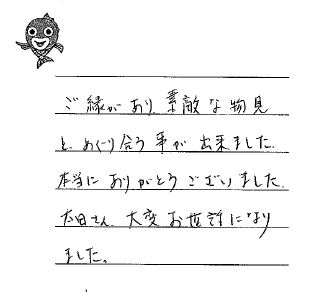 ご縁があり 素敵な物見
と、めぐり合う事が出来ました.
本当にありがとうございました.
太田さん、大変お世話になり
ました。